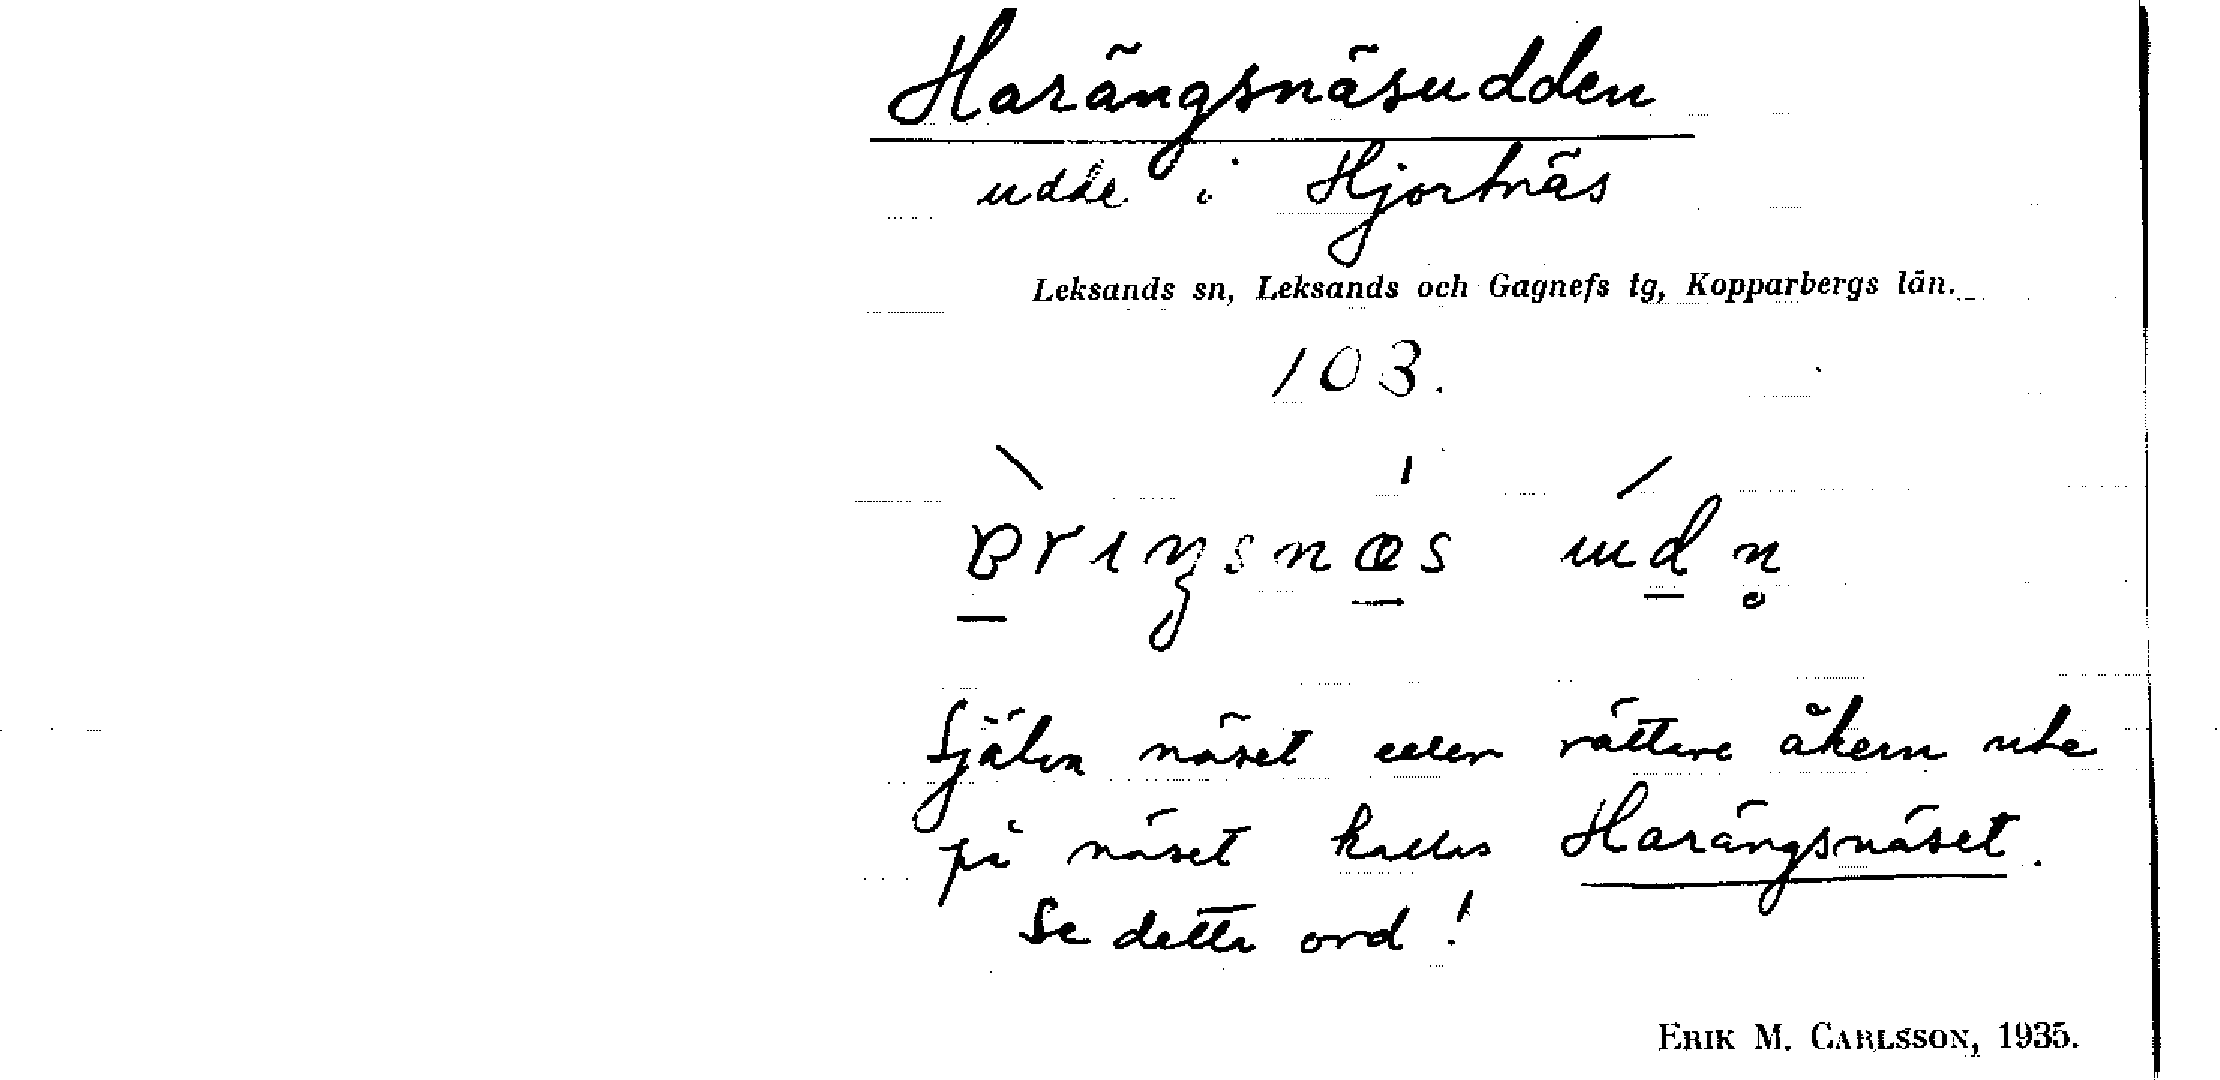 Harängsnäsudden
udde i Hjortnäs
Leksands sn, Leksands och Gagnefs tg, Kopparbergs län.
103.
Själva näset eller rättare åkern ute
på näset kallas Harängsnäset.
Se detta ord!
ERIK M. CARLSSON, 1935.